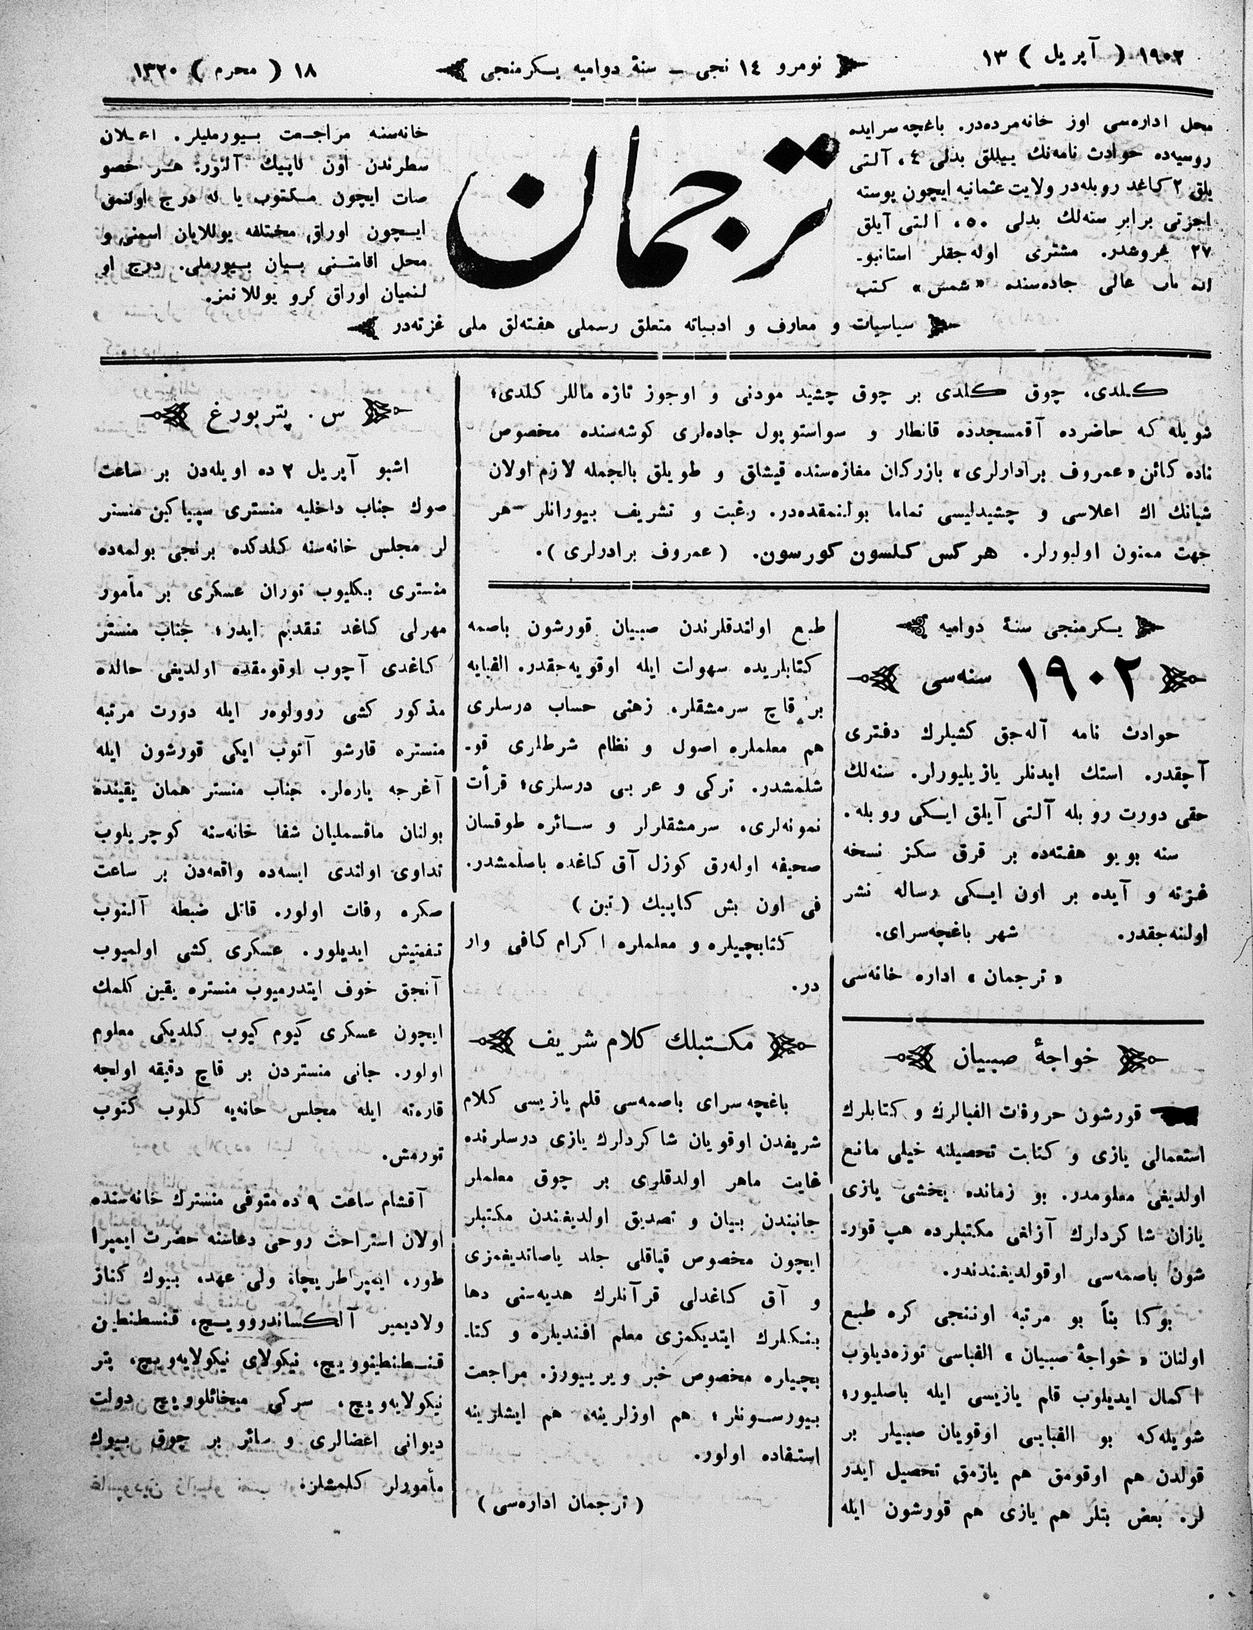 ١٩٠٢ ( آپریل ) ١٣
نومرو ١٤ نجی ــ سنهٔ دوامیه یـكرمنجی
١٨ ( محرم ) ١٣٢٠
محل اداره‌سی اوز خانه‌مزده‌در. باغچه‌سرایده
روسیه‌ده حوادث نامه‌نك ییللق بدلی ٤، آلتی
یلق ٢ كاغد روبله‌در ولایت عثمانیه ایچون پوسته
اجرتی برابر سنه‌لك بدلی ٥٠، التی آیلق
٢٧ غروشدر. مشتری اوله‌جقلر استانبو-
لده باب عالی جاده‌سنده «شمس» كتب
ترجمان
خانه‌سنه مراجـعت بـیورملیلر. اعـلان
سطرندن اون كاپیك آلنور. هـر خصو
صات ایچون مـكتوب یا له درج اولنمق
ایـچون اوراق مختلفه یوللایان اسمنی و
محل اقامتـنی بـیان بـیورملی. درج او
لـنمیان اوراق كرو یوللانمز.
سیاسیات و معارف و ادبیاته متعلق رسملی هفته‌لق ملی غزته‌در
كـلدی. چوق كـلدی بر چوق چشید مودنی و اوجوز تازه ماللر كلدی؛
شویله كه حاضرده آقمسجدده قانطار و سواستوپول جاده‌لری كوشه‌سنده مخصوص
ناده كائن «عمروف برادارلری» بازركان مغازه‌سنده قیشلق و طویلق بالجمله لازم اولان
شبانك اك اعلاسی و چشیدلیسی تماما بولنمقده‌در. رغبت و تشریف بیورانلر هر
جهت ممنون اولیورلر. هركس كلسون كورسون. (عمروف برادرلری).
یـكرمنجی سنهٔ دوامیه
١٩٠٢ سنه‌سی
حوادث نامه آله‌جق كشیلرك دفتری
آچقدر. استك ایدنلر یازیلیورلر. سنه‌لك
حقی دورت روبله آلتی آیلق ایـكی روبله.
سنه بویو هفته‌ده بر قرق سكز نسخه
غزته و آیده بر اون ایـكی رساله نشر
اولنه‌جقدر. شهر باغچه‌سرای.
«ترجمان» اداره خانه‌سی
خواجهٔ صبیان
قورشون حروفات الفبالرك و كتابلرك
استعمالی یازی و كتابت تحصیلنه خیلی مانع
اولدیغی معلومدر. بو زمانده یخشی یازی
یازان شاكردلرك آزلغی مكتبلرده هپ قور-
شون باصمه‌سی اوقولدیغندندر.
بوكا بناً بو مرتبه اوننجی كره طبع
اولنان «خواجهٔ صبیان» الفباسی توزه‌دیلوب
اكمال ایدیلوب قلم یازیسی ایله باصلیور؛
شویله‌كه بو الفبایی اوقویان صبیلر بر
قولدن هم اوقومق هم یازمق تحصیل ایدر
لر. بعض بتلر هم یازی هم قورشون ایله
طبع اولندقلرندن صبیان قورشون باصمه
كتابلریده سهولت ایله اوقویه‌جقدر. الفبایه
بر قاچ سرمشقلر، زهنی حساب درسلری
هم معلملره اصول و نظام شرطلری قو-
شلمشدر. تركی و عربی درسلری؛ قرأت
نمونه‌لری، سرمشقلرلر و سـائره طوقسان
صحیفه اوله‌رق كوزل آق كاغده باصلمشدر.
فی اون بش كاپیك (تین)
كتابچیلره و معلملره اكرام كافی وار
در.
مكـتبلك كلام شریف
باغچه‌سرای باصمه‌سی قلم یازیسی كلام
شریفدن اوقویان شاكردلرك یازی درسلرنده
غایت ماهر اولدقلری بر چوق معلملر
جانبندن بیان و تصدیق اولدیغندن مكتبلر
ایچون مخصوص قپاقلی جلد یاصاندیغمزی
و آق كاغدلی قرآنلرك هدیه‌سنی دها
ینـكلرك ایتدیكمزی معلم افندیلره و كتا-
بچیلره مخصوص خبر ویرییورز. مراجعت
بـیورسـونلر؛ هم اوزلرینه، هم ایشلرینه
استـفاده اولور.
(ترجمان اداره‌سی)
س. پتربورغ
اشبو آپریل ٢ ده اویله‌دن بر ساعت
صوك جناب داخلیه منستری سپیاكین منستر
لر مجلس خانه‌سنه كلدكده برنجی بولمه‌ده
منستری بكلیوب توران عسكری بر مأمور
مهرلی كاغد تقدیم ایدر؛ جناب منستر
كاغدی آچوب اوقومقده اولدیغی حالده
مذكور كشی روولوەر ایله دورت مرتبه
منستره قارشو آتوب ایكی قورشون ایله
آغرجه یاره‌لر. جناب منستر همان یقینده
بولنان ماقسملیان شفا خانه‌سنه كوچریلوب
تداوی اولندی ایسه‌ده واقعه‌دن بر ساعت
صكره وفات اولور. قاتل ضبطه آلنوب
تـفتیش ایدیلور. عسكری كشی اولمیوب
آنجق خوف ایتدرمیوب منستره یقین كلمك
ایچون عسكری كیوم كیوب كلدیكی معلوم
اولور. جانی منستردن بر قاچ دقیقه اولجه
قارەته ایله مجلس خانه‌یه كلوب كتوب
تورمش.
آقشام ساعت ٩ ده متوفی منسترك خانه‌سنده
اولان استراحت روحی دعاسنه حضرت ایمپرا
طور، ایمپراطریچه، ولی عهد، بـیوك كناز
ولادیمیر آلـكساندروویـچ، قنسطنطین
قنسطنطینوویچ، نیكولای نیكولایەویچ، پتر
نیكولایەویچ، سركی میخائلوویچ دولت
دیوانی اعضالری و سائر بر چوق بیوك
مأمورلر كلمشلر.